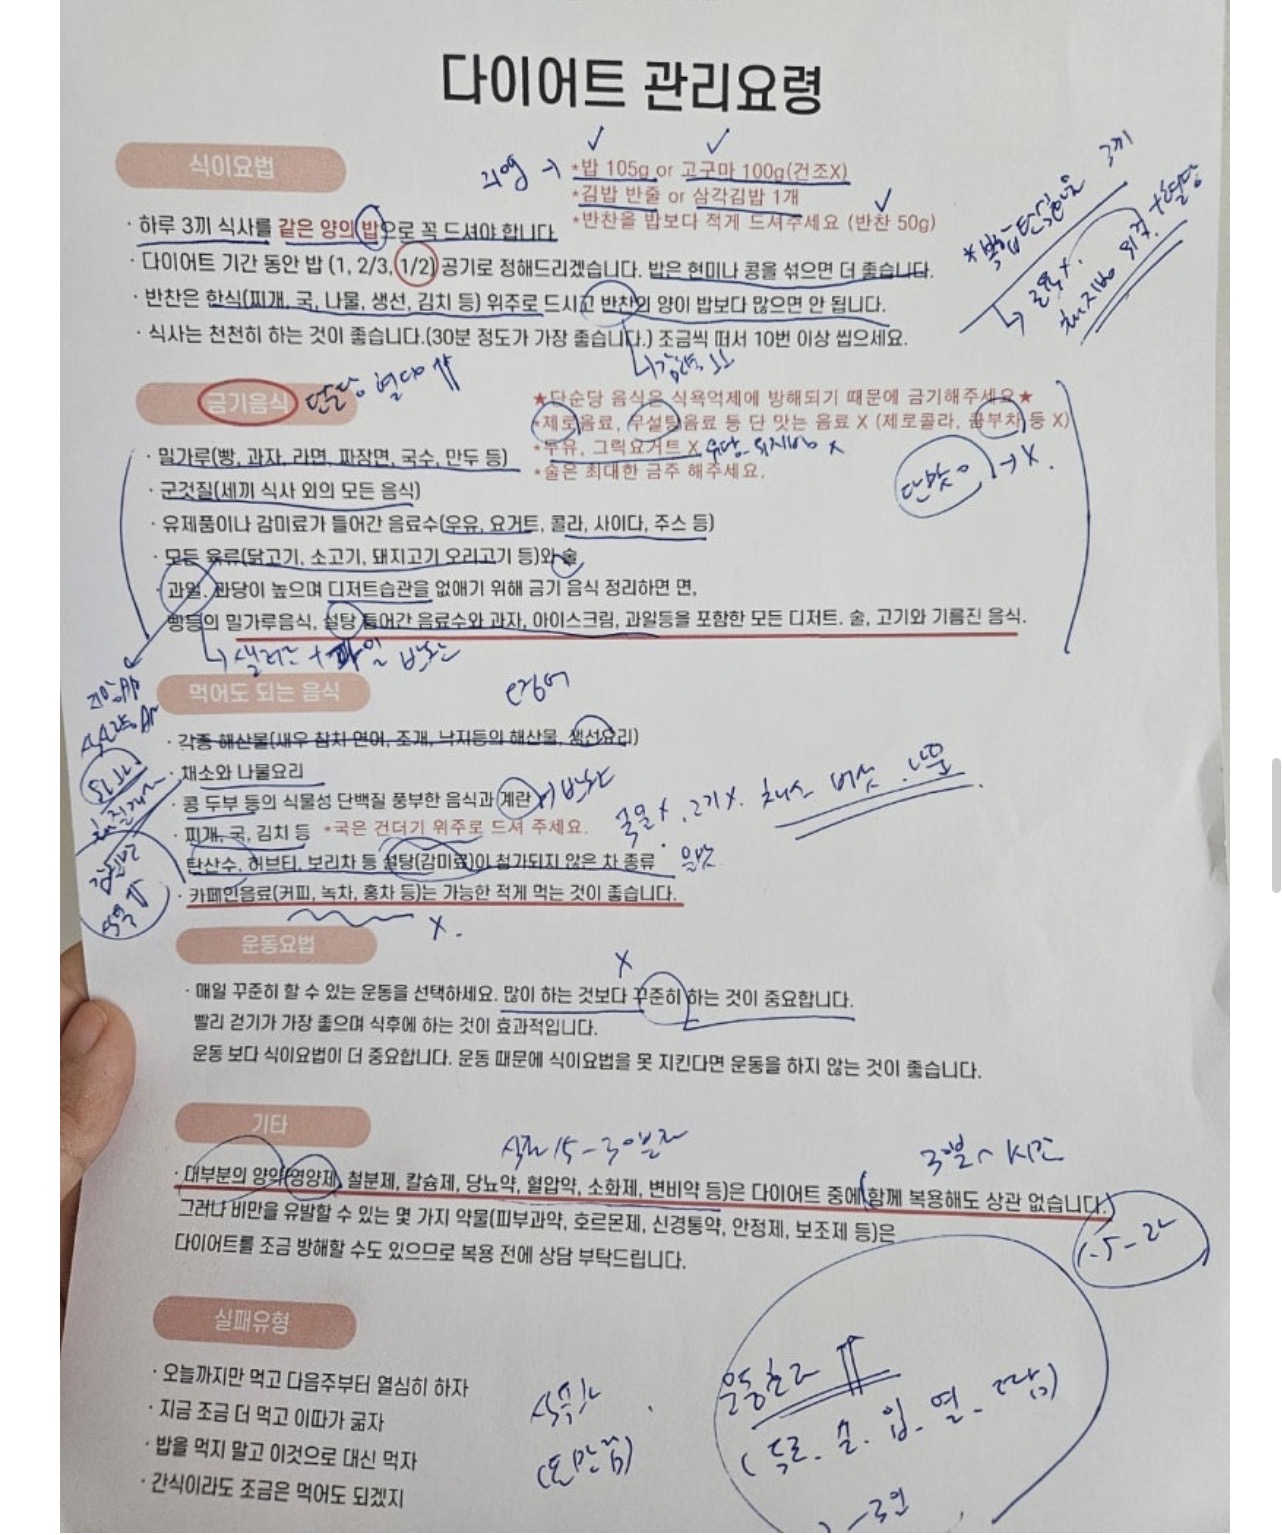 다이어트 관리요령
식이요법
*밥 105g or 고구마 100g(건조X)
*김밥 반줄 or 삼각김밥 1개
*반찬을 밥보다 적게 드셔주세요 (반찬 50g)
· 하루 3끼 식사를 같은 양의 밥으로 꼭 드셔야 합니다
· 다이어트 기간 동안 밥 (1, 2/3, 1/2) 공기로 정해드리겠습니다. 밥은 현미나 콩을 섞으면 더 좋습니다.
· 반찬은 한식(찌개, 국, 나물, 생선, 김치 등) 위주로 드시고 반찬의 양이 밥보다 많으면 안 됩니다.
· 식사는 천천히 하는 것이 좋습니다.(30분 정도가 가장 좋습니다.) 조금씩 떠서 10번 이상 씹으세요.
*복합탄수화물 3끼
금기음식
★단순당 음식은 식욕억제에 방해되기 때문에 금기해주세요★
*제로음료, 무설탕음료 등 단 맛는 음료 X (제로콜라, 콤부차 등 X)
*두유, 그릭요거트 X
*술은 최대한 금주 해주세요.
단맛 → X.
· 밀가루(빵, 과자, 라면, 짜장면, 국수, 만두 등)
· 군것질(세끼 식사 외의 모든 음식)
· 유제품이나 감미료가 들어간 음료수(우유, 요거트, 콜라, 사이다, 주스 등)
· 모든 육류(닭고기, 소고기, 돼지고기 오리고기 등)와 술
· 과일. 과당이 높으며 디저트습관을 없애기 위해 금기 음식 정리하면 면,
빵등의 밀가루음식, 설탕 들어간 음료수와 과자, 아이스크림, 과일등을 포함한 모든 디저트. 술, 고기와 기름진 음식.
먹어도 되는 음식
· 각종 해산물(새우 참치 연어, 조개, 낙지등의 해산물, 생선요리)
· 채소와 나물요리
· 콩 두부 등의 식물성 단백질 풍부한 음식과 계란
· 찌개, 국, 김치 등 *국은 건더기 위주로 드셔 주세요.
국물X, 고기X. 채소 버섯. 나물.
탄산수, 허브티, 보리차 등 설탕(감미료)이 첨가되지 않은 차 종류
· 카페인음료(커피, 녹차, 홍차 등)는 가능한 적게 먹는 것이 좋습니다.
X.
운동요법
X
· 매일 꾸준히 할 수 있는 운동을 선택하세요. 많이 하는 것보다 꾸준히 하는 것이 중요합니다.
빨리 걷기가 가장 좋으며 식후에 하는 것이 효과적입니다.
운동 보다 식이요법이 더 중요합니다. 운동 때문에 식이요법을 못 지킨다면 운동을 하지 않는 것이 좋습니다.
기타
30분~1시간
· 대부분의 양약(영양제, 철분제, 칼슘제, 당뇨약, 혈압약, 소화제, 변비약 등)은 다이어트 중에 함께 복용해도 상관 없습니다.
그러나 비만을 유발할 수 있는 몇 가지 약물(피부과약, 호르몬제, 신경통약, 안정제, 보조제 등)은
다이어트를 조금 방해할 수도 있으므로 복용 전에 상담 부탁드립니다.
1.5-2L
실패유형
· 오늘까지만 먹고 다음주부터 열심히 하자
· 지금 조금 더 먹고 이따가 굶자
· 밥을 먹지 말고 이것으로 대신 먹자
· 간식이라도 조금은 먹어도 되겠지
운동효과